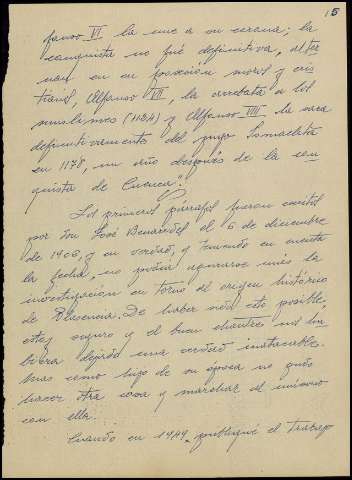 15
fonso VI la une a su corona; la
conquista no fué definitiva, alter
nan en su posesión moros y cris
tianos, Alfonso VII, la arrebata a los
muslimes (1124) y Alfonso VIII la saca
definitivamente del yugo Ismaelita
en 1178, un año después de la con
quista de Cuenca".
Los primeros párrafos fueron escritos
por don José Benavides el 6 de diciembre
de 1906, y en verdad, y teniendo en cuenta
la fecha, no podía apurarse más la
investigación en torno al origen histórico
de De haber sido esto posible,
estoy seguro y el buen chantre nos hu
biera dejado una verdad inatacable.
Mas como hijo de su época no pudo
hacer otra cosa y marchar al unísono
con ella.
Cuando en 1949, publiqué el trabajo